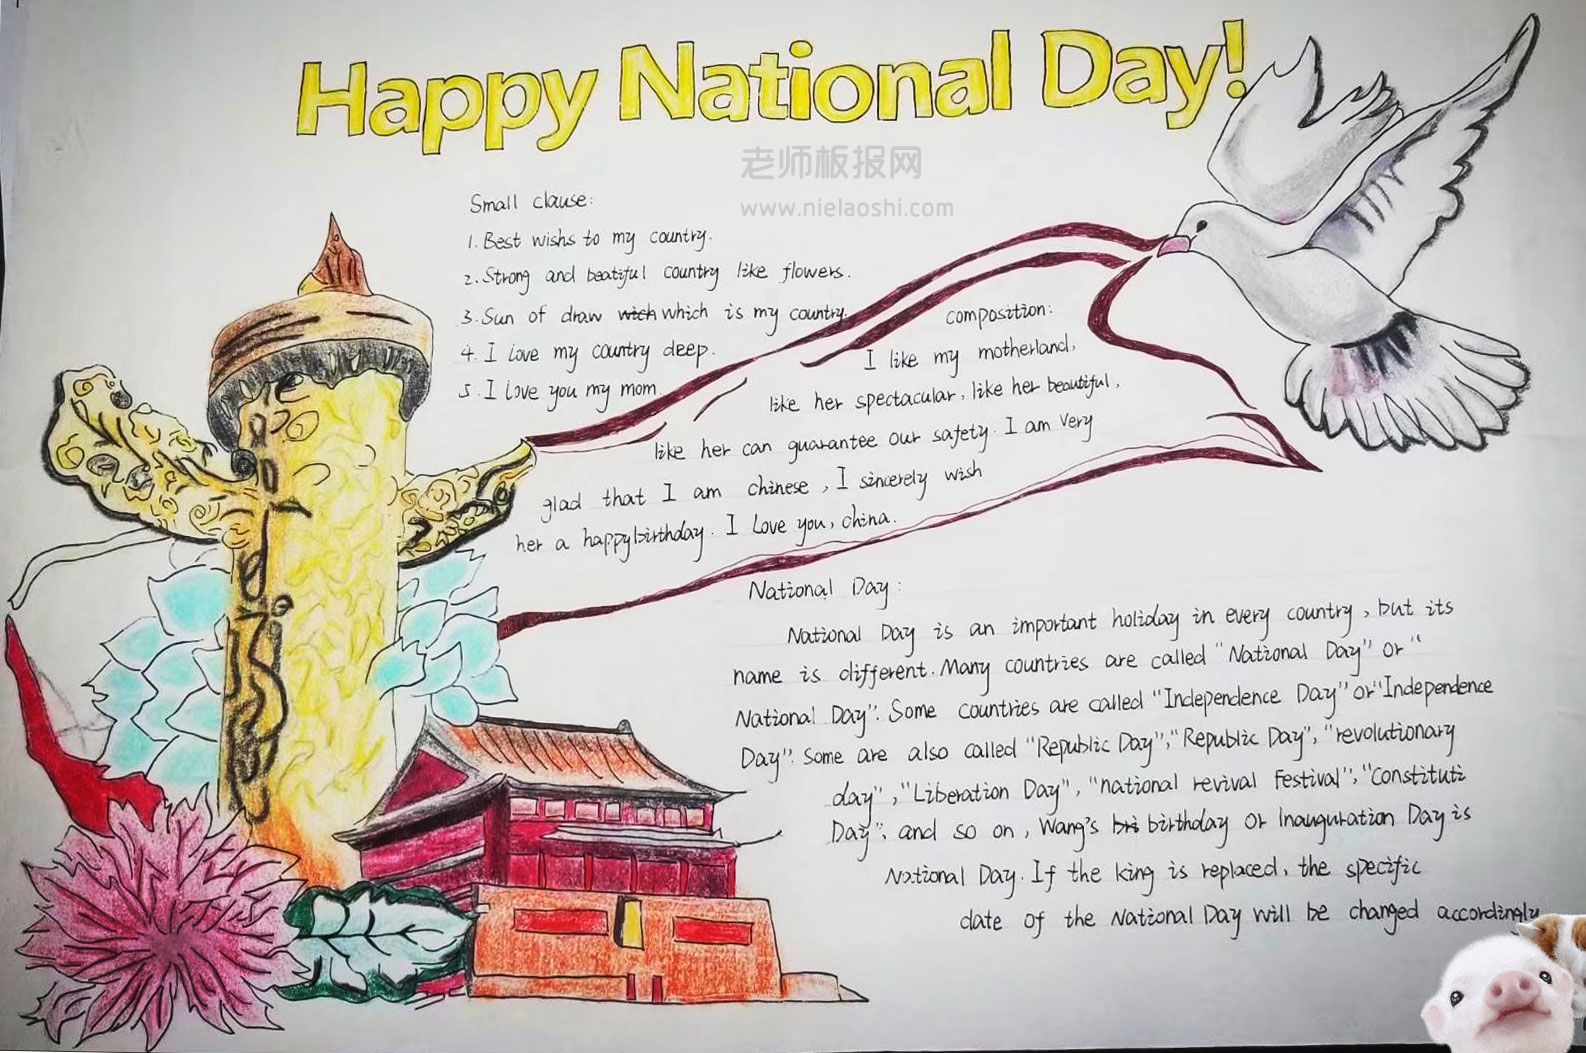 Happy National Day!
老师板报网
www.nielaoshi.com
Small clause:
1. Best wishs to my country.
2. Strong and beatiful country like flowers.
3. Sun of draw wich which is my country.
4. I love my country deep.
5. I love you my mom.
composition:
I like my motherland,
like her spectacular, like her beautiful,
like her can guarantee our safety. I am very
glad that I am chinese, I sincerely wish
her a happybirthday. I Love you, china.
National Day:
National Day is an important holiday in every country, but its
name is different. Many countries are called "National Day" or "
National Day". Some countries are called "Independence Day" or "Independence
Day". Some are also called "Republic Day", "Republic Day", "revolutionary
day", "Liberation Day", "national revival Festival", "Constituti
Day", and so on, Wang's bri birthday or Inauguration Day is
National Day. If the king is replaced, the specific
date of the National Day will be changed accordingly